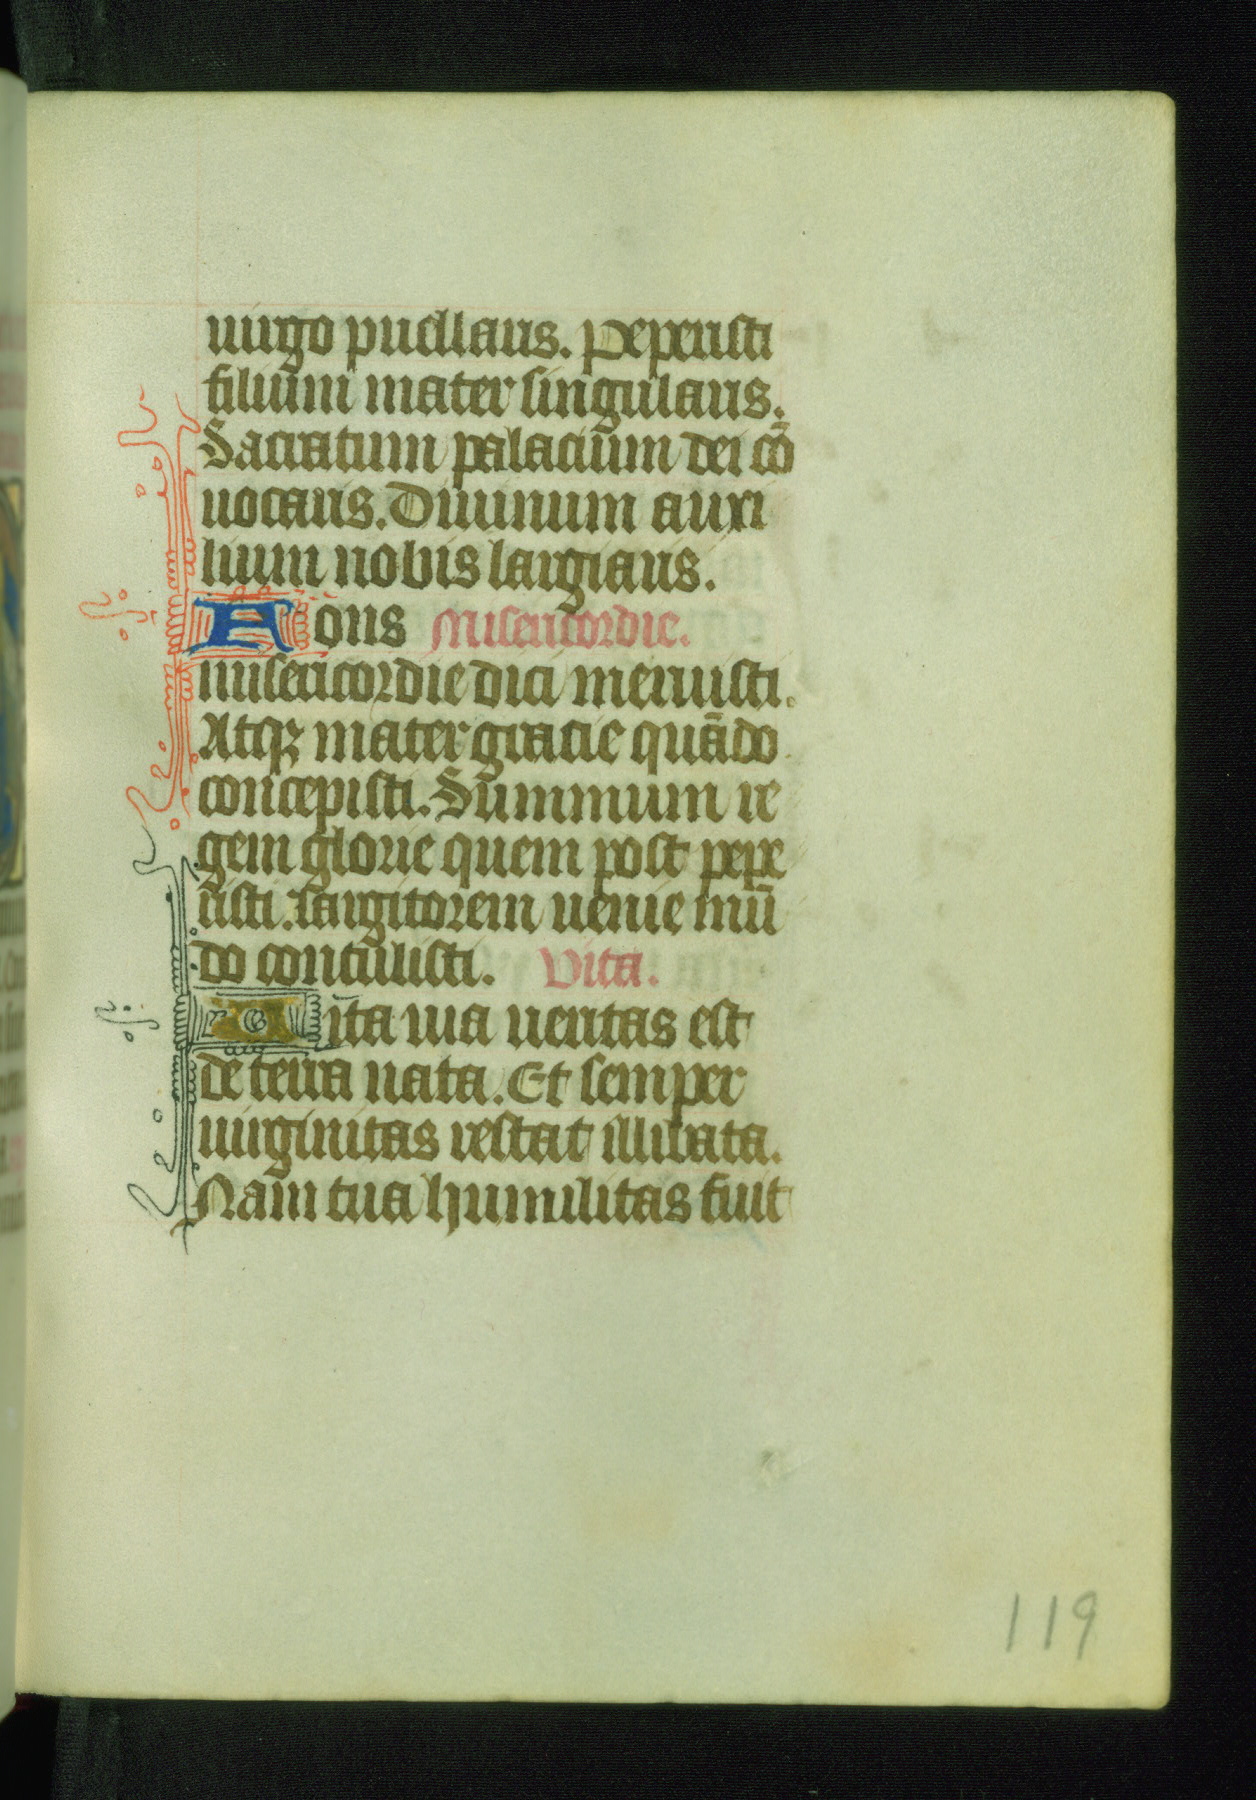 uirgo puellaris. Peperisti
filium mater singularis.
Sacratum palacium dei cō
uocaris. Diuinum auxi
lium nobis largiaris.
Fons Misericordie.
misericordie dici meruisti.
Atqꝫ mater gracie quādo
concepisti. Summum re
gem glorie quem post pepe
risti. largitorem uenie mū
do contulisti. Vita.
Vita uia ueritas est
de terra nata. Et semper
uirginitas restat illibata.
Nam tua humilitas fuit
119